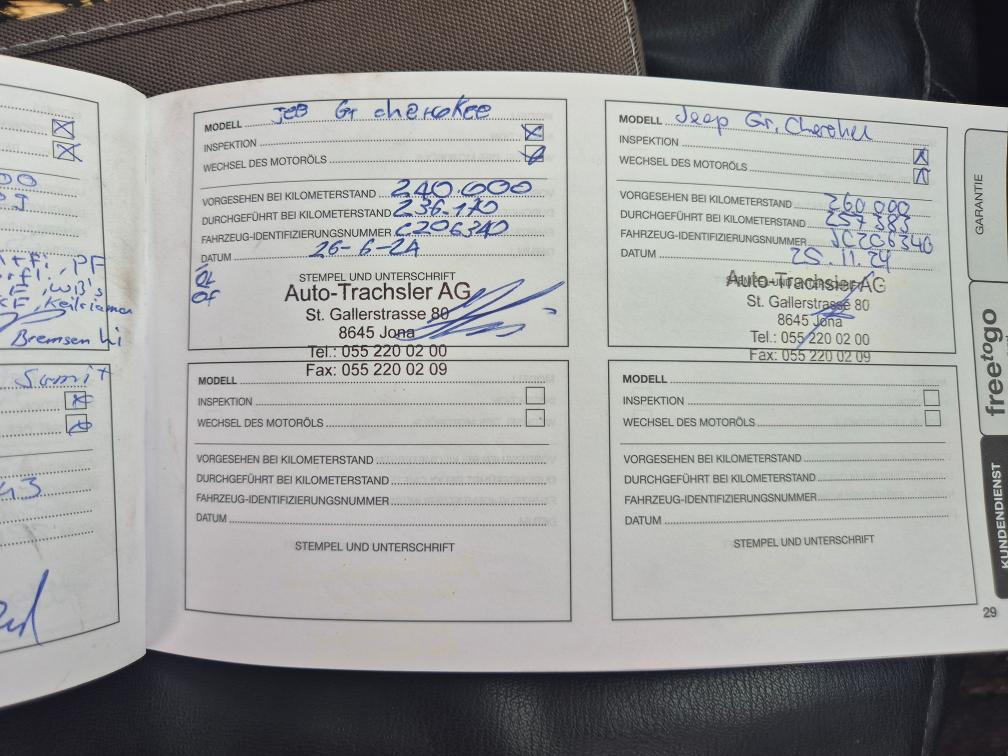 00
PJ
, PF
, WB's
Bremsen hi
Sumit
43
MODELL Jeb Gr cherokee
INSPEKTION
WECHSEL DES MOTORÖLS
VORGESEHEN BEI KILOMETERSTAND 240.000
DURCHGEFÜHRT BEI KILOMETERSTAND 236.170
FAHRZEUG-IDENTIFIZIERUNGSNUMMER C206340
DATUM 26-6-24
ÖL
ÖF
STEMPEL UND UNTERSCHRIFT
Auto-Trachsler AG
St. Gallerstrasse 80
8645 Jona
Tel.: 055 220 02 00
Fax: 055 220 02 09
MODELL Jeep Gr. Cherokee
INSPEKTION
WECHSEL DES MOTORÖLS
VORGESEHEN BEI KILOMETERSTAND 260.000
DURCHGEFÜHRT BEI KILOMETERSTAND 257383
FAHRZEUG-IDENTIFIZIERUNGSNUMMER JC206340
DATUM 25.11.24
STEMPEL UND UNTERSCHRIFT
Auto-Trachsler AG
St. Gallerstrasse 80
8645 Jona
Tel.: 055 220 02 00
Fax: 055 220 02 09
MODELL
INSPEKTION
WECHSEL DES MOTORÖLS
VORGESEHEN BEI KILOMETERSTAND
DURCHGEFÜHRT BEI KILOMETERSTAND
FAHRZEUG-IDENTIFIZIERUNGSNUMMER
DATUM
STEMPEL UND UNTERSCHRIFT
MODELL
INSPEKTION
WECHSEL DES MOTORÖLS
VORGESEHEN BEI KILOMETERSTAND
DURCHGEFÜHRT BEI KILOMETERSTAND
FAHRZEUG-IDENTIFIZIERUNGSNUMMER
DATUM
STEMPEL UND UNTERSCHRIFT
GARANTIE
freetogo
KUNDENDIENST
29